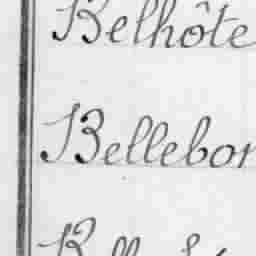 Belhôte
Bellebon